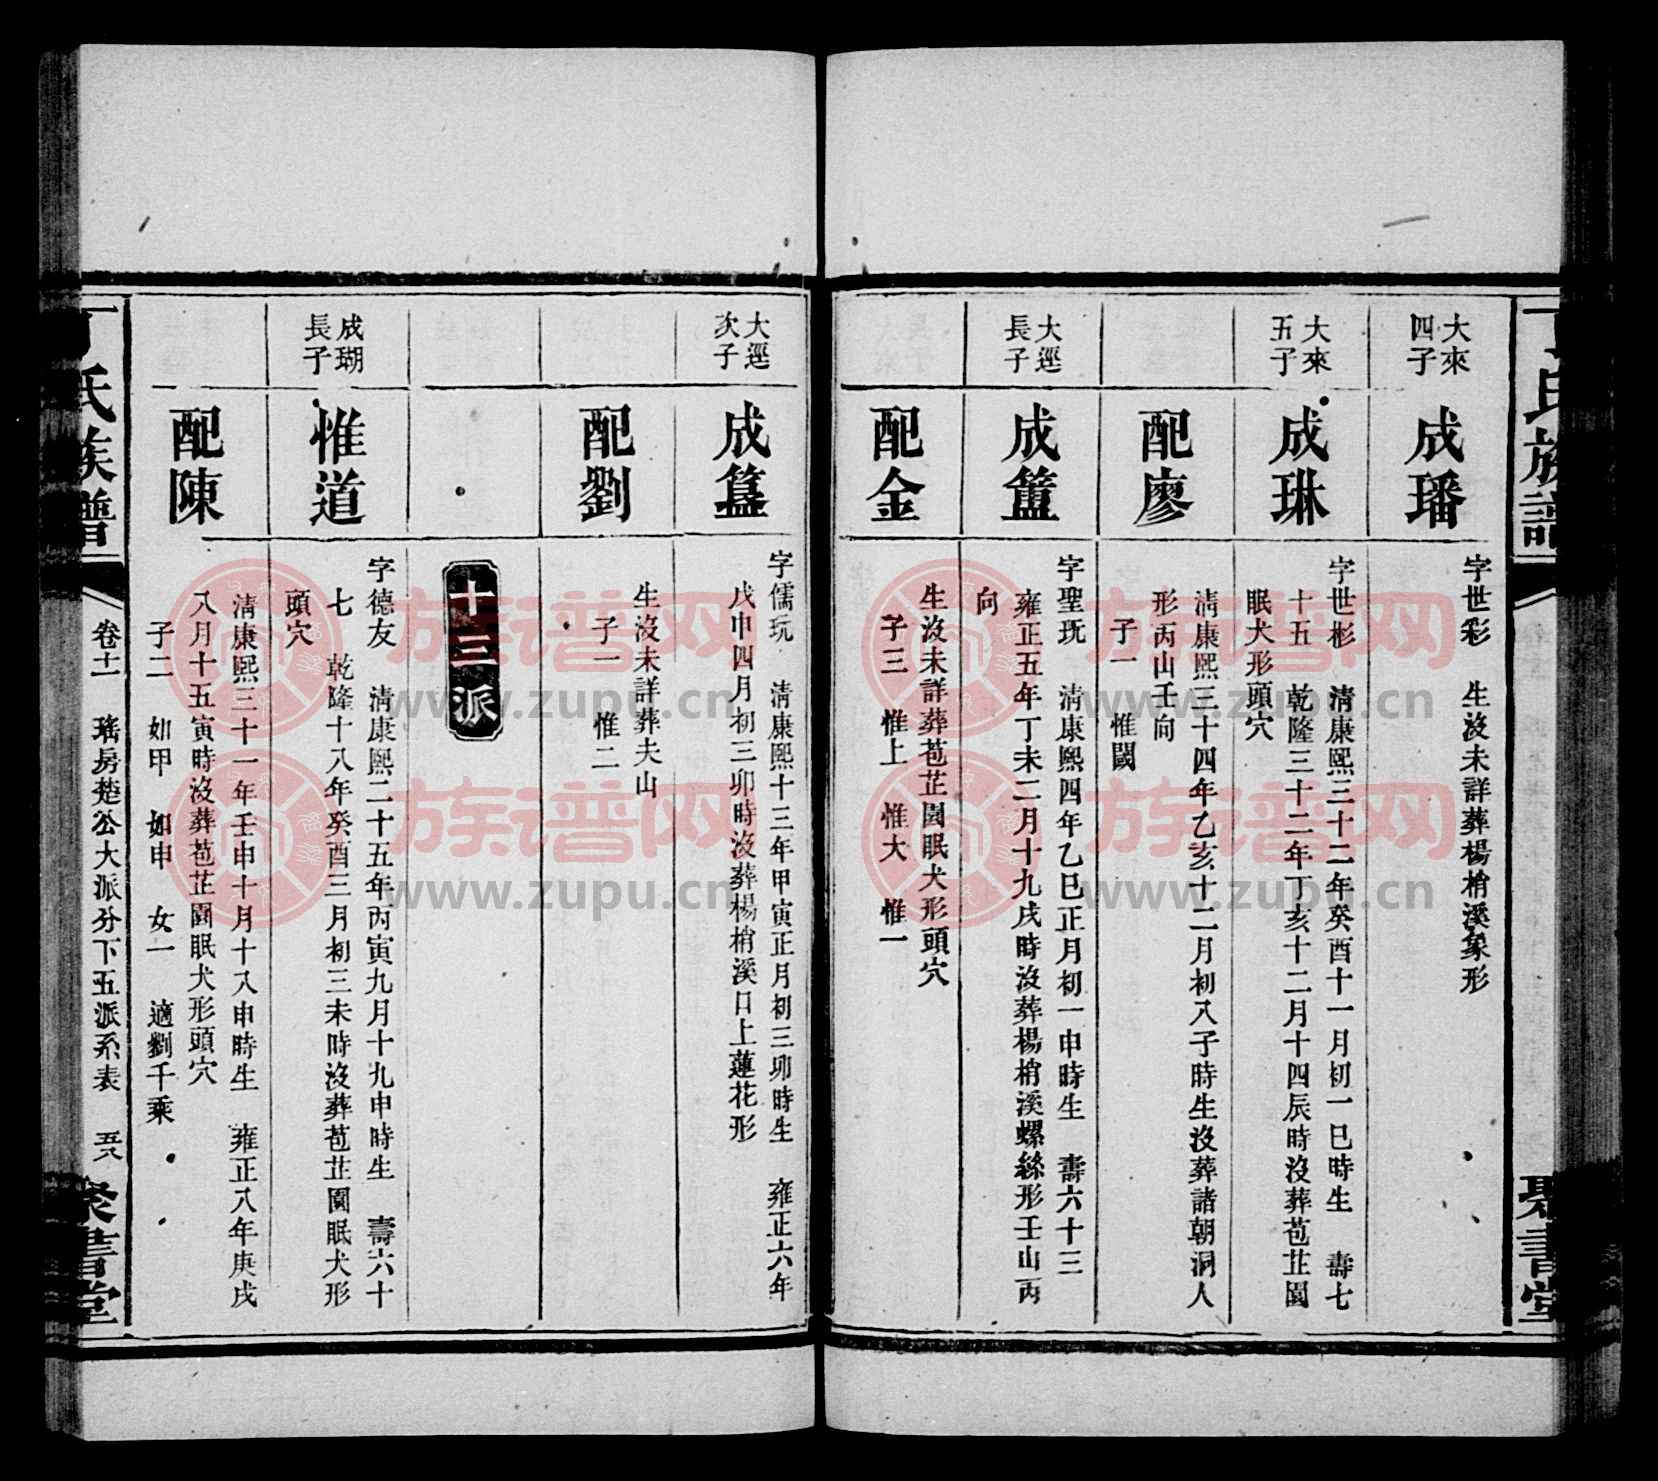 氏族譜
聚書堂
大來
四子
成璠
字世彩　生沒未詳葬楊梢溪象形
大來
五子
成琳
字世彬　清康熙三十二年癸酉十一月初一巳時生　壽七
十五　乾隆三十二年丁亥十二月十四辰時沒葬苞芷園
眠犬形頭穴
配廖
清康熙三十四年乙亥十二月初八子時生沒葬諸朝洞人
形丙山壬向
子一　惟閾
大逕
長子
成簠
字聖玩　清康熙四年乙巳正月初一申時生　壽六十三
雍正五年丁未二月十九戌時沒葬楊梢溪螺絲形壬山丙
向
配金
生沒未詳葬苞芷園眠犬形頭穴
子三　惟上　惟大　惟一
大逕
次子
成簋
字儒玩　清康熙十三年甲寅正月初三卯時生　雍正六年
戊申四月初三卯時沒葬楊梢溪口上蓮花形
配劉
生沒未詳葬夫山
子一　惟二
十三派
成瑚
長子
惟道
字德友　清康熙二十五年丙寅九月十九申時生　壽六十
七　乾隆十八年癸酉三月初三未時沒葬苞芷園眠犬形
頭穴
配陳
清康熙三十一年壬申十月十八申時生　雍正八年庚戌
八月十五寅時沒葬苞芷園眠犬形頭穴
子二　如甲　如申　女一　適劉千乘
丁氏族譜
卷十一　瑀房楚公大派分下五派系表　五八
聚書堂
族谱网
www.zupu.cn
族谱网
www.zupu.cn
族谱网
www.zupu.cn
族谱网
www.zupu.cn